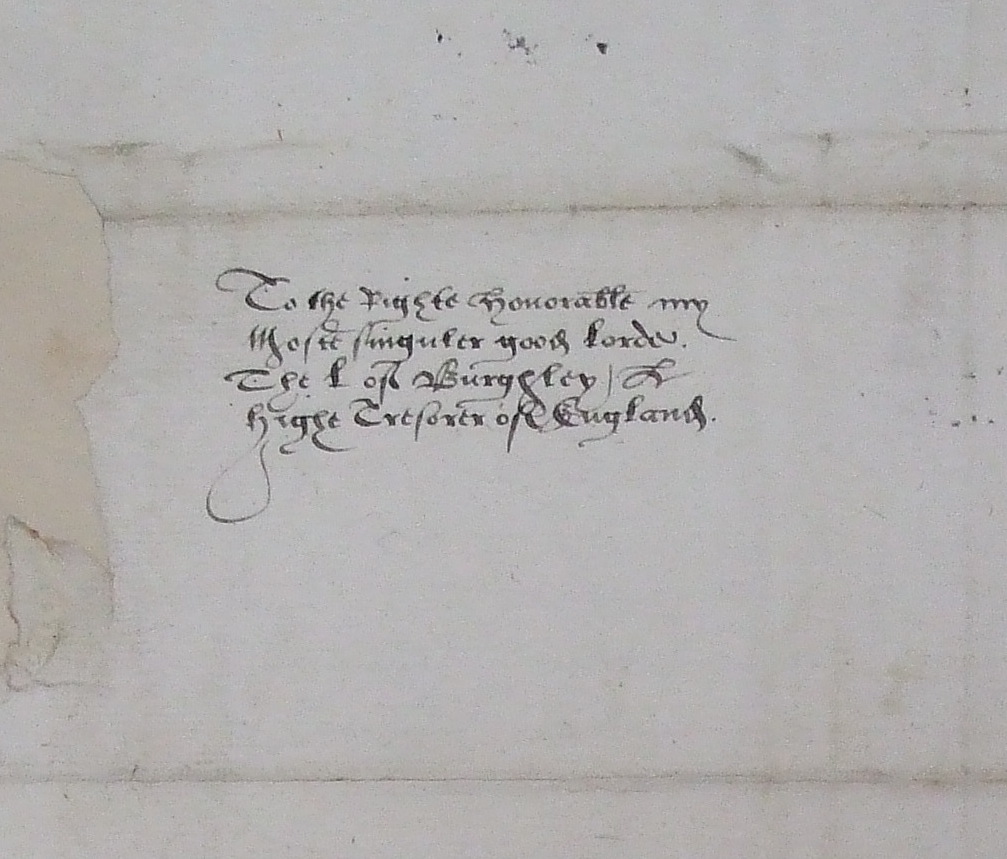 To the Righte Honorable my
Moste singuler good Lorde.
The L of Burghley /
highe Tresorer of England.